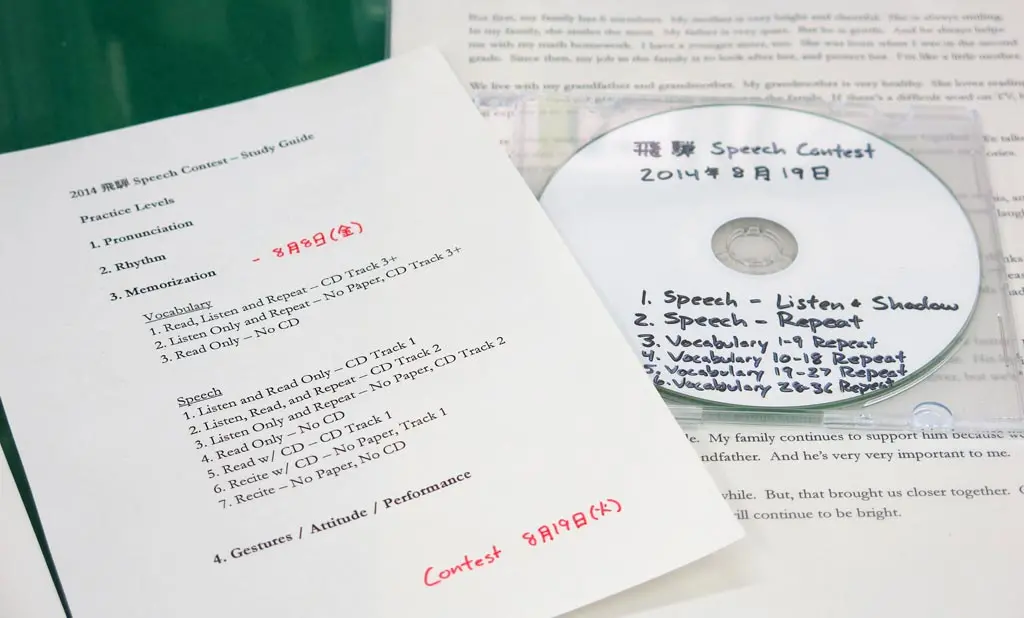 2014 飛騨 Speech Contest – Study Guide
Practice Levels
1. Pronunciation
2. Rhythm
3. Memorization - 8月8日(金)
Vocabulary
1. Read, Listen and Repeat – CD Track 3+
2. Listen Only and Repeat – No Paper, CD Track 3+
3. Read Only – No CD
Speech
1. Listen and Read Only – CD Track 1
2. Listen, Read, and Repeat – CD Track 2
3. Listen Only and Repeat – No Paper, CD Track 2
4. Read Only – No CD
5. Read w/ CD – CD Track 1
6. Recite w/ CD – No Paper, Track 1
7. Recite – No Paper, No CD
4. Gestures / Attitude / Performance
Contest 8月19日(火)
飛騨 Speech Contest
2014年8月19日
1. Speech - Listen & Shadow
2. Speech - Repeat
3. Vocabulary 1-9 Repeat
4. Vocabulary 10-18 Repeat
5. Vocabulary 19-27 Repeat
6. Vocabulary 28-36 Repeat
But first, my family has 6 members. My mother is very bright and cheerful. She is always smiling.
me with my much homework. I have a younger sister, too. She was born when I was in the second
grade. Since then, my job in the family is to look after her, and protect her. I'm like a little mother
We live with my grandfather and grandmother. My grandmother is very healthy. She loves reading
the family. If there's a difficult word on TV,
My family continues to support him because
ndfather. And he's very very important to me.
while. But, that brought us closer together.
ill continue to be bright.